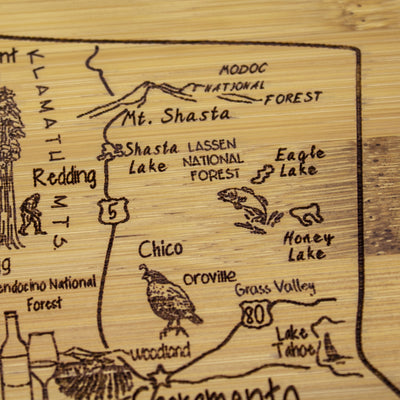 MODOC
NATIONAL
FOREST
KLAMATH MTS
Mt. Shasta
Shasta
Lake
LASSEN
NATIONAL
FOREST
Eagle
Lake
Redding
5
Honey
Lake
Chico
Oroville
endocino National
Forest
Grass Valley
80
Lake
Tahoe
Woodland
Sacramento